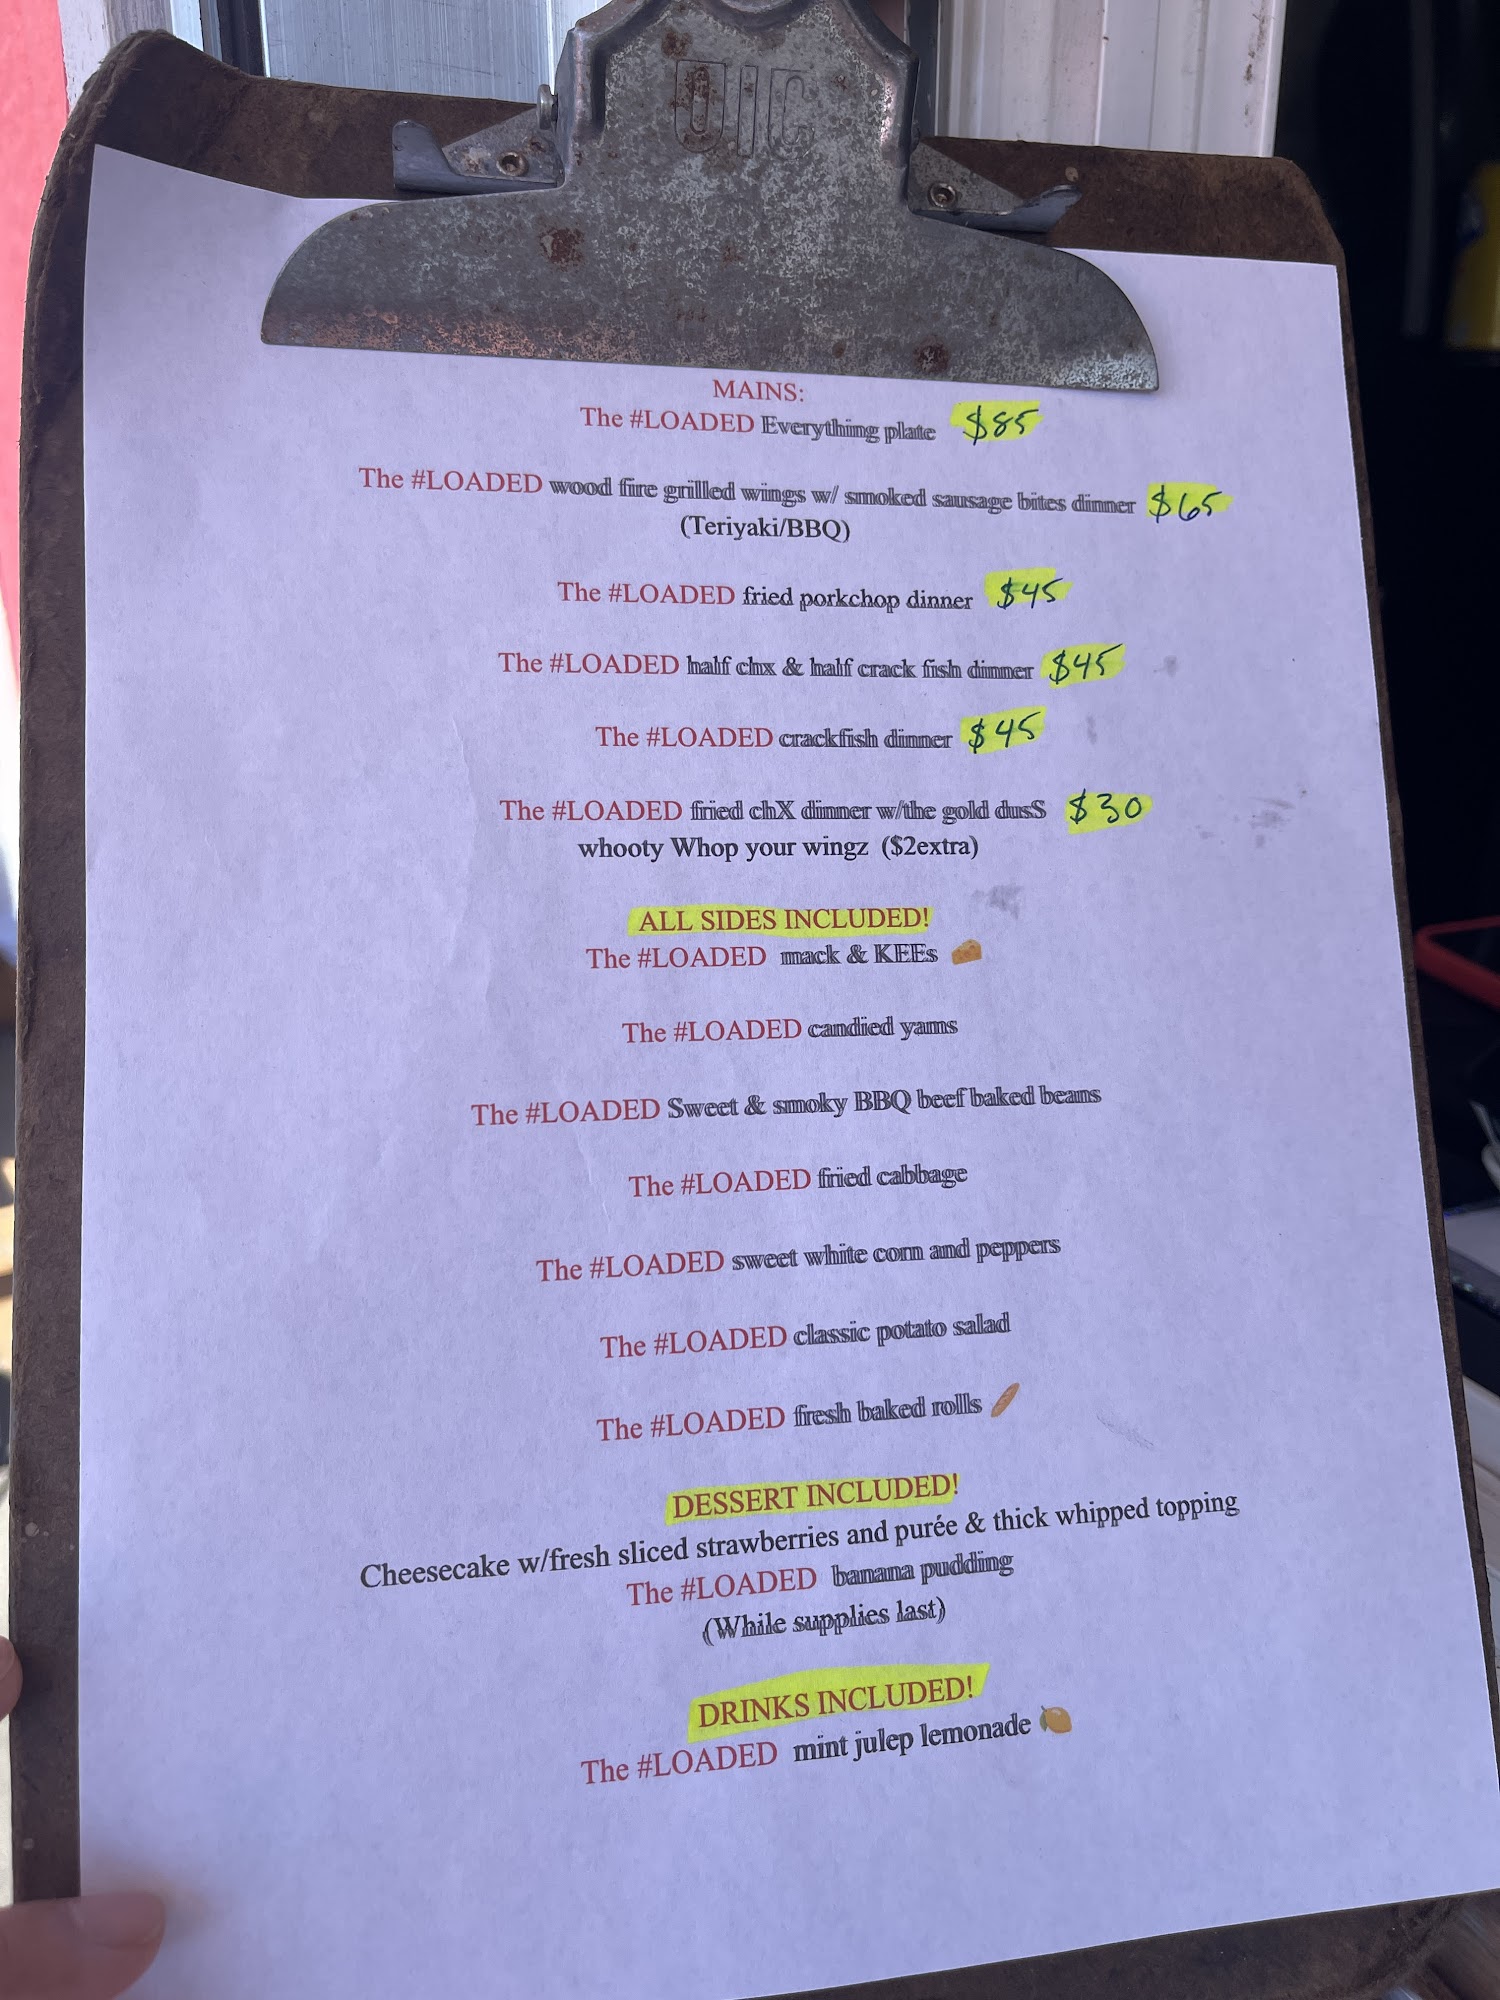 UIC
MAINS:
The #LOADED Everything plate $85
The #LOADED wood fire grilled wings w/ smoked sausage bites dinner $65
(Teriyaki/BBQ)
The #LOADED fried porkchop dinner $45
The #LOADED half chx & half crack fish dinner $45
The #LOADED crackfish dinner $45
The #LOADED fried chX dinner w/the gold dusS $30
whooty Whop your wingz ($2extra)
ALL SIDES INCLUDED!
The #LOADED mack & KEEs 🧀
The #LOADED candied yams
The #LOADED Sweet & smoky BBQ beef baked beans
The #LOADED fried cabbage
The #LOADED sweet white corn and peppers
The #LOADED classic potato salad
The #LOADED fresh baked rolls 🥖
DESSERT INCLUDED!
Cheesecake w/fresh sliced strawberries and purée & thick whipped topping
The #LOADED banana pudding
(While supplies last)
DRINKS INCLUDED!
The #LOADED mint julep lemonade 🍋